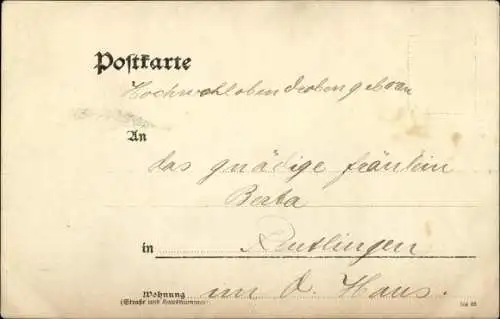 Postkarte
Hochwohlobendrobengeboren
An
das gnädige fräulein
Berta
in Reutlingen
Wohnung im d. Haus.
(Straße und Hausnummer)